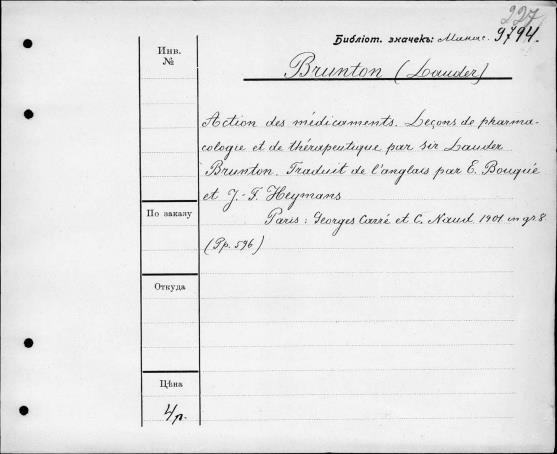 227
Библіот. значекъ: Манас. 9794.
Инв.
№
Brunton (Lauder)
Action des médicaments. Leçons de pharma-
cologie et de thérapeutique par sir Lauder
Brunton. Traduit de l'anglais par E. Bouqué
et J.-F. Heymans
По заказу
Paris: Georges Carré et C. Naud 1901 in gr. 8
(Pp. 596)
Откуда
Цѣна
4р.